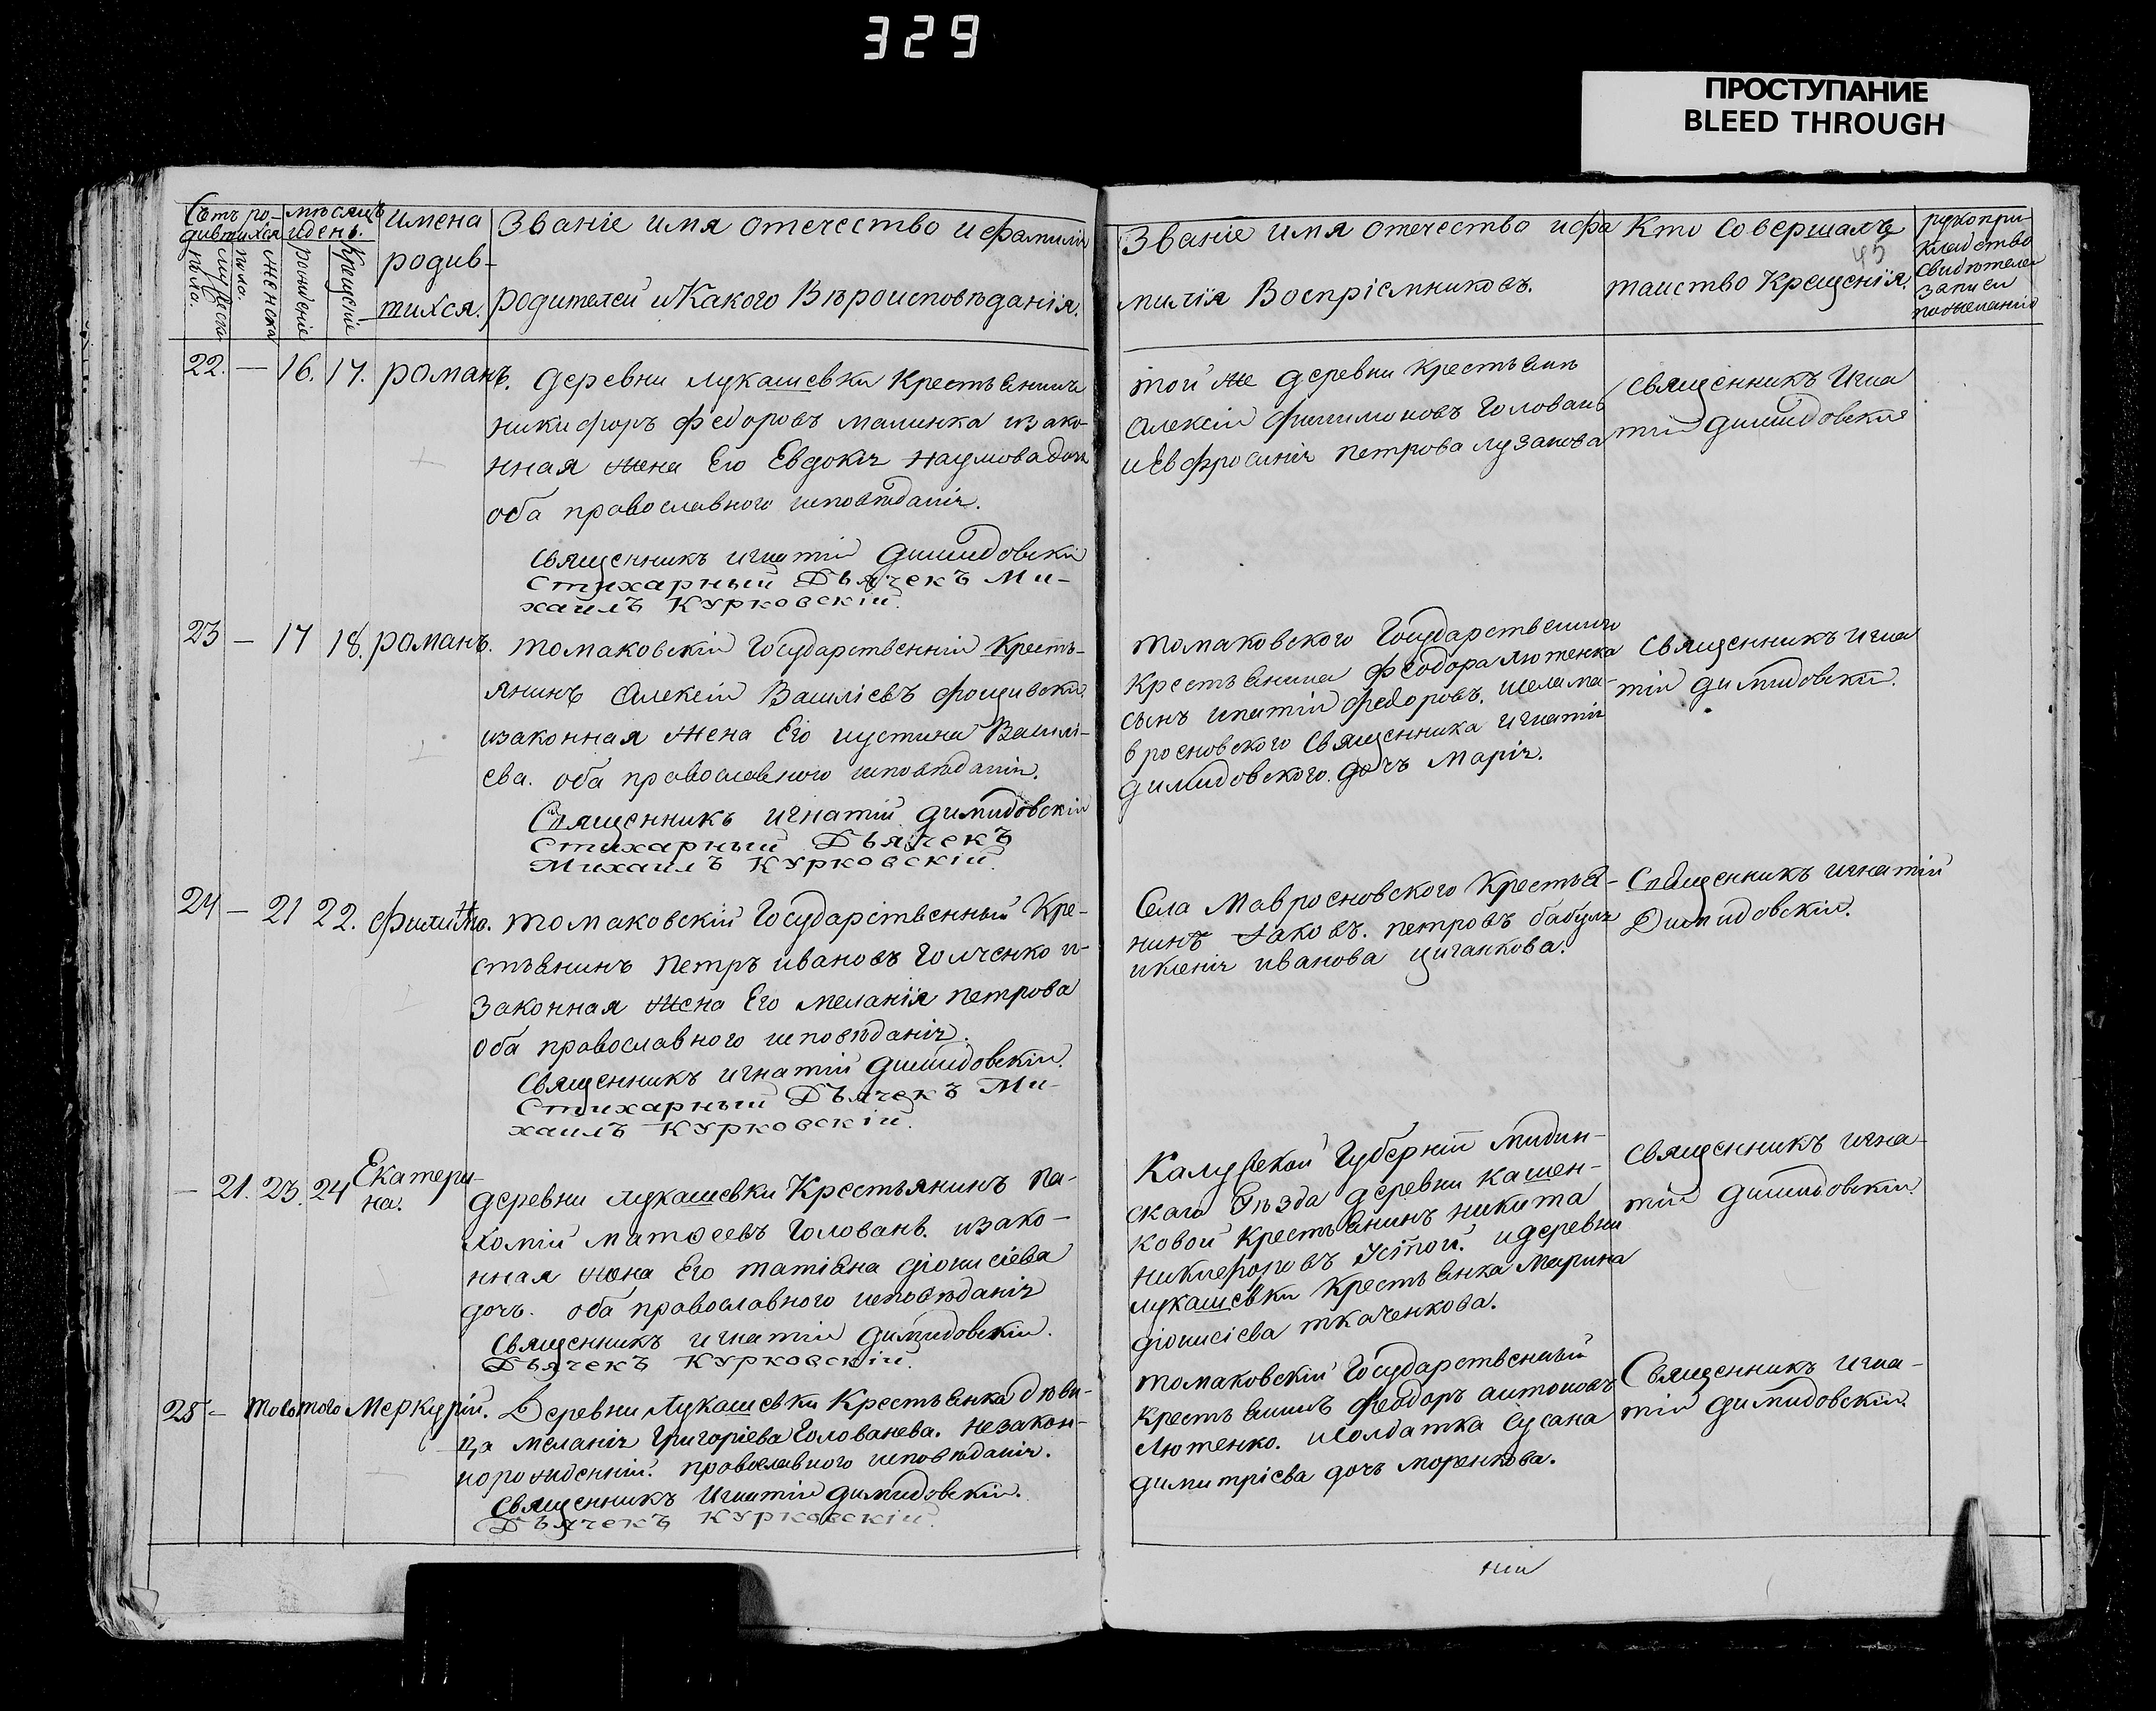 329
ПРОСТУПАНИЕ
BLEED THROUGH
Счетъ ро-
дившихся
мѣсяцъ
и день.
имена
родив-
шихся.
Званіе имя отечество и фамилія
родителей и Какого Вѣроисповѣданія.
мужска
пола.
женска
пола.
рожденіе
Крещеніе
Званіе имя отечество и фа
милія Воспріемниковъ.
Кто Совершалъ
таинство Крещенія.
45
рукопри-
кладство
свидѣтелей
записи
по желанію
22. — 16. 17. романъ.
деревни лукашевки Крестьянинъ
никифоръ федоровъ малинка и зако-
нная жена Его Евдокія наумова дочь
оба православного исповѣданія.
Священникъ игнатій димидовскій
Стихарный Дьячекъ Ми-
хаилъ Курковскій.
той же деревни крестьянъ
Алексій филимоновъ Головань
и Евфросинія петрова лузанова
священникъ Игна
тій димидовскій
23 — 17 18. романъ.
томаковскій Государственній Кресть-
янинъ Алексій Василіевъ фощивскій
и законная жена Его иустина Васили-
ева. оба православного исповѣданія.
Священникъ игнатій димидовскій
Стихарный Дьячекъ
Михаилъ Курковскій.
томаковского Государственного
Крестьянина феодора лютенка
сынъ ипатій федоровъ. и села ма-
вроеновского Священника игнатія
димидовского. дочь Марія.
Священникъ игна
тій димидовскій.
24 — 21 22.
томаковскій Государственный Кре-
стьянинъ петръ ивановъ Голченко и
законная жена Его меланія петрова
оба православного исповѣданія.
Священникъ игнатій димидовскій.
Стихарный Дьячекъ Ми-
хаилъ Курковскій.
Села Мавроеновского Крестья-
нинъ Іаковъ. петровъ бабула
и ксенія иванова циганкова.
Священникъ игнатій
Димидовскій.
— 21. 23. 24 Екатери-
на.
деревни лукашевки Крестьянинъ па-
хомій матѳеевъ Головань. и зако-
нная жена Его татіяна діонисіева
дочь. оба православного исповѣданія
Священникъ игнатій димидовскій.
Дьячекъ Курковскій.
Калужской Губерніи мидин-
скаго Уѣзда деревни кашен-
ковой Крестьянинъ никита
никифоровъ устой. и деревни
лукашевки Крестьянка Марина
діонисіева ткаченкова.
священникъ игна-
тій димидовскій.
25 — того того Меркурій.
Деревни Лукашевки Крестьянка дѣви-
ца меланія Григоріева Голованева. незакон-
норожденній. православного исповѣданія.
Священникъ Игнатій димидовскій.
Дьячекъ Курковскій.
томаковскій Государственный
Крестьянинъ феодоръ антоновъ
Лютенко. и Солдатка Сусана
димитріева дочь моренкова.
Священникъ игна-
тій димидовскій.